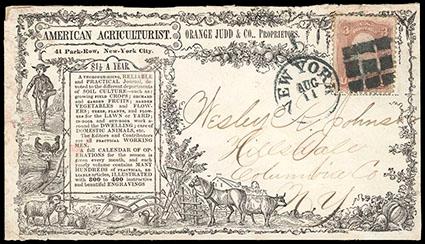 AMERICAN AGRICULTURIST.
ORANGE JUDD & CO., PROPRIETORS.
41 Park-Row, New-York City.
$1½ A YEAR.
A THOROUGH-GOING, RELIABLE
and PRACTICAL Journal, de-
voted to the different departments
of SOIL CULTURE—such as
growing FIELD CROPS; ORCHARD
and GARDEN FRUITS; GARDEN
VEGETABLES and FLOW-
ERS; TREES, PLANTS, and FLOW-
ERS for the LAWN or YARD;
IN-DOOR and OUT-DOOR work
around the DWELLING; care of
DOMESTIC ANIMALS, etc.
The Editors and Contributors
are all PRACTICAL WORKING
MEN.
A full CALENDAR OF OP-
ERATIONS for the season is
given every month, and each
yearly volume contains MANY
HUNDREDS OF PRACTICAL, RE-
LIABLE articles, ILLUSTRATED
with 300 to 400 instructive
and beautiful ENGRAVINGS
NEW YORK
AUG
3
Johnson
Hillsdale
Columbia Co
N.Y.